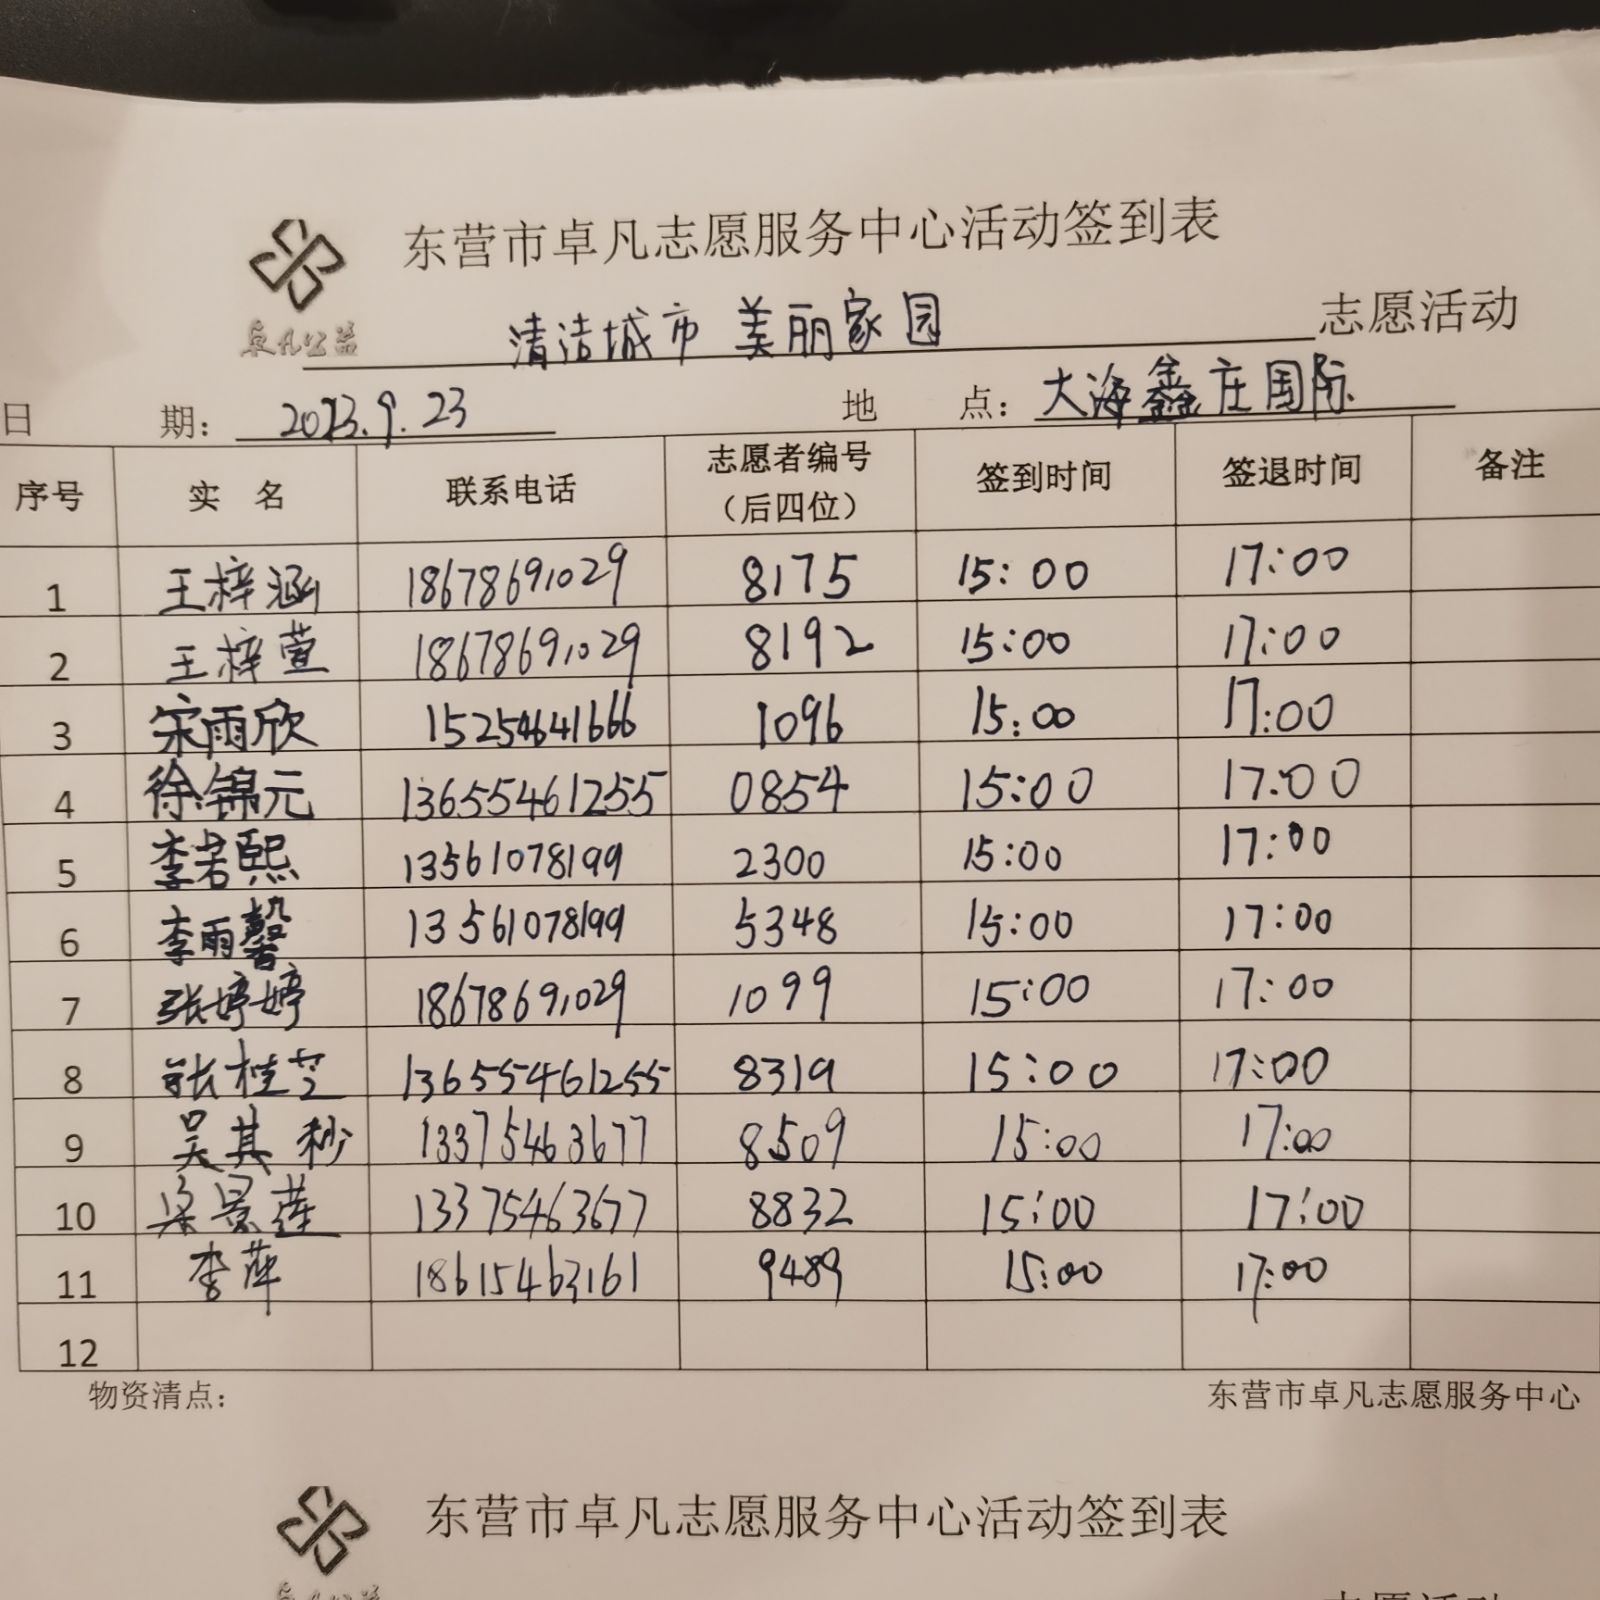 东营市卓凡志愿服务中心活动签到表
卓凡公益
清洁城市 美丽家园 志愿活动
日 期: 2023.9.23 地 点: 大海鑫庄国际
序号 实 名 联系电话 志愿者编号（后四位） 签到时间 签退时间 备注
1 王梓涵 18678691029 8175 15:00 17:00
2 王梓萱 18678691029 8192 15:00 17:00
3 宋雨欣 15254641666 1096 15:00 17:00
4 徐锦元 13655461255 0854 15:00 17:00
5 李若熙 13561078199 2300 15:00 17:00
6 李雨馨 13561078199 5348 15:00 17:00
7 张婷婷 18678691029 1099 15:00 17:00
8 张桂芝 13655461255 8319 15:00 17:00
9 吴其秒 13375463677 8509 15:00 17:00
10 梁景莲 13375463677 8832 15:00 17:00
11 李萍 18615463161 9489 15:00 17:00
12
物资清点: 东营市卓凡志愿服务中心
东营市卓凡志愿服务中心活动签到表